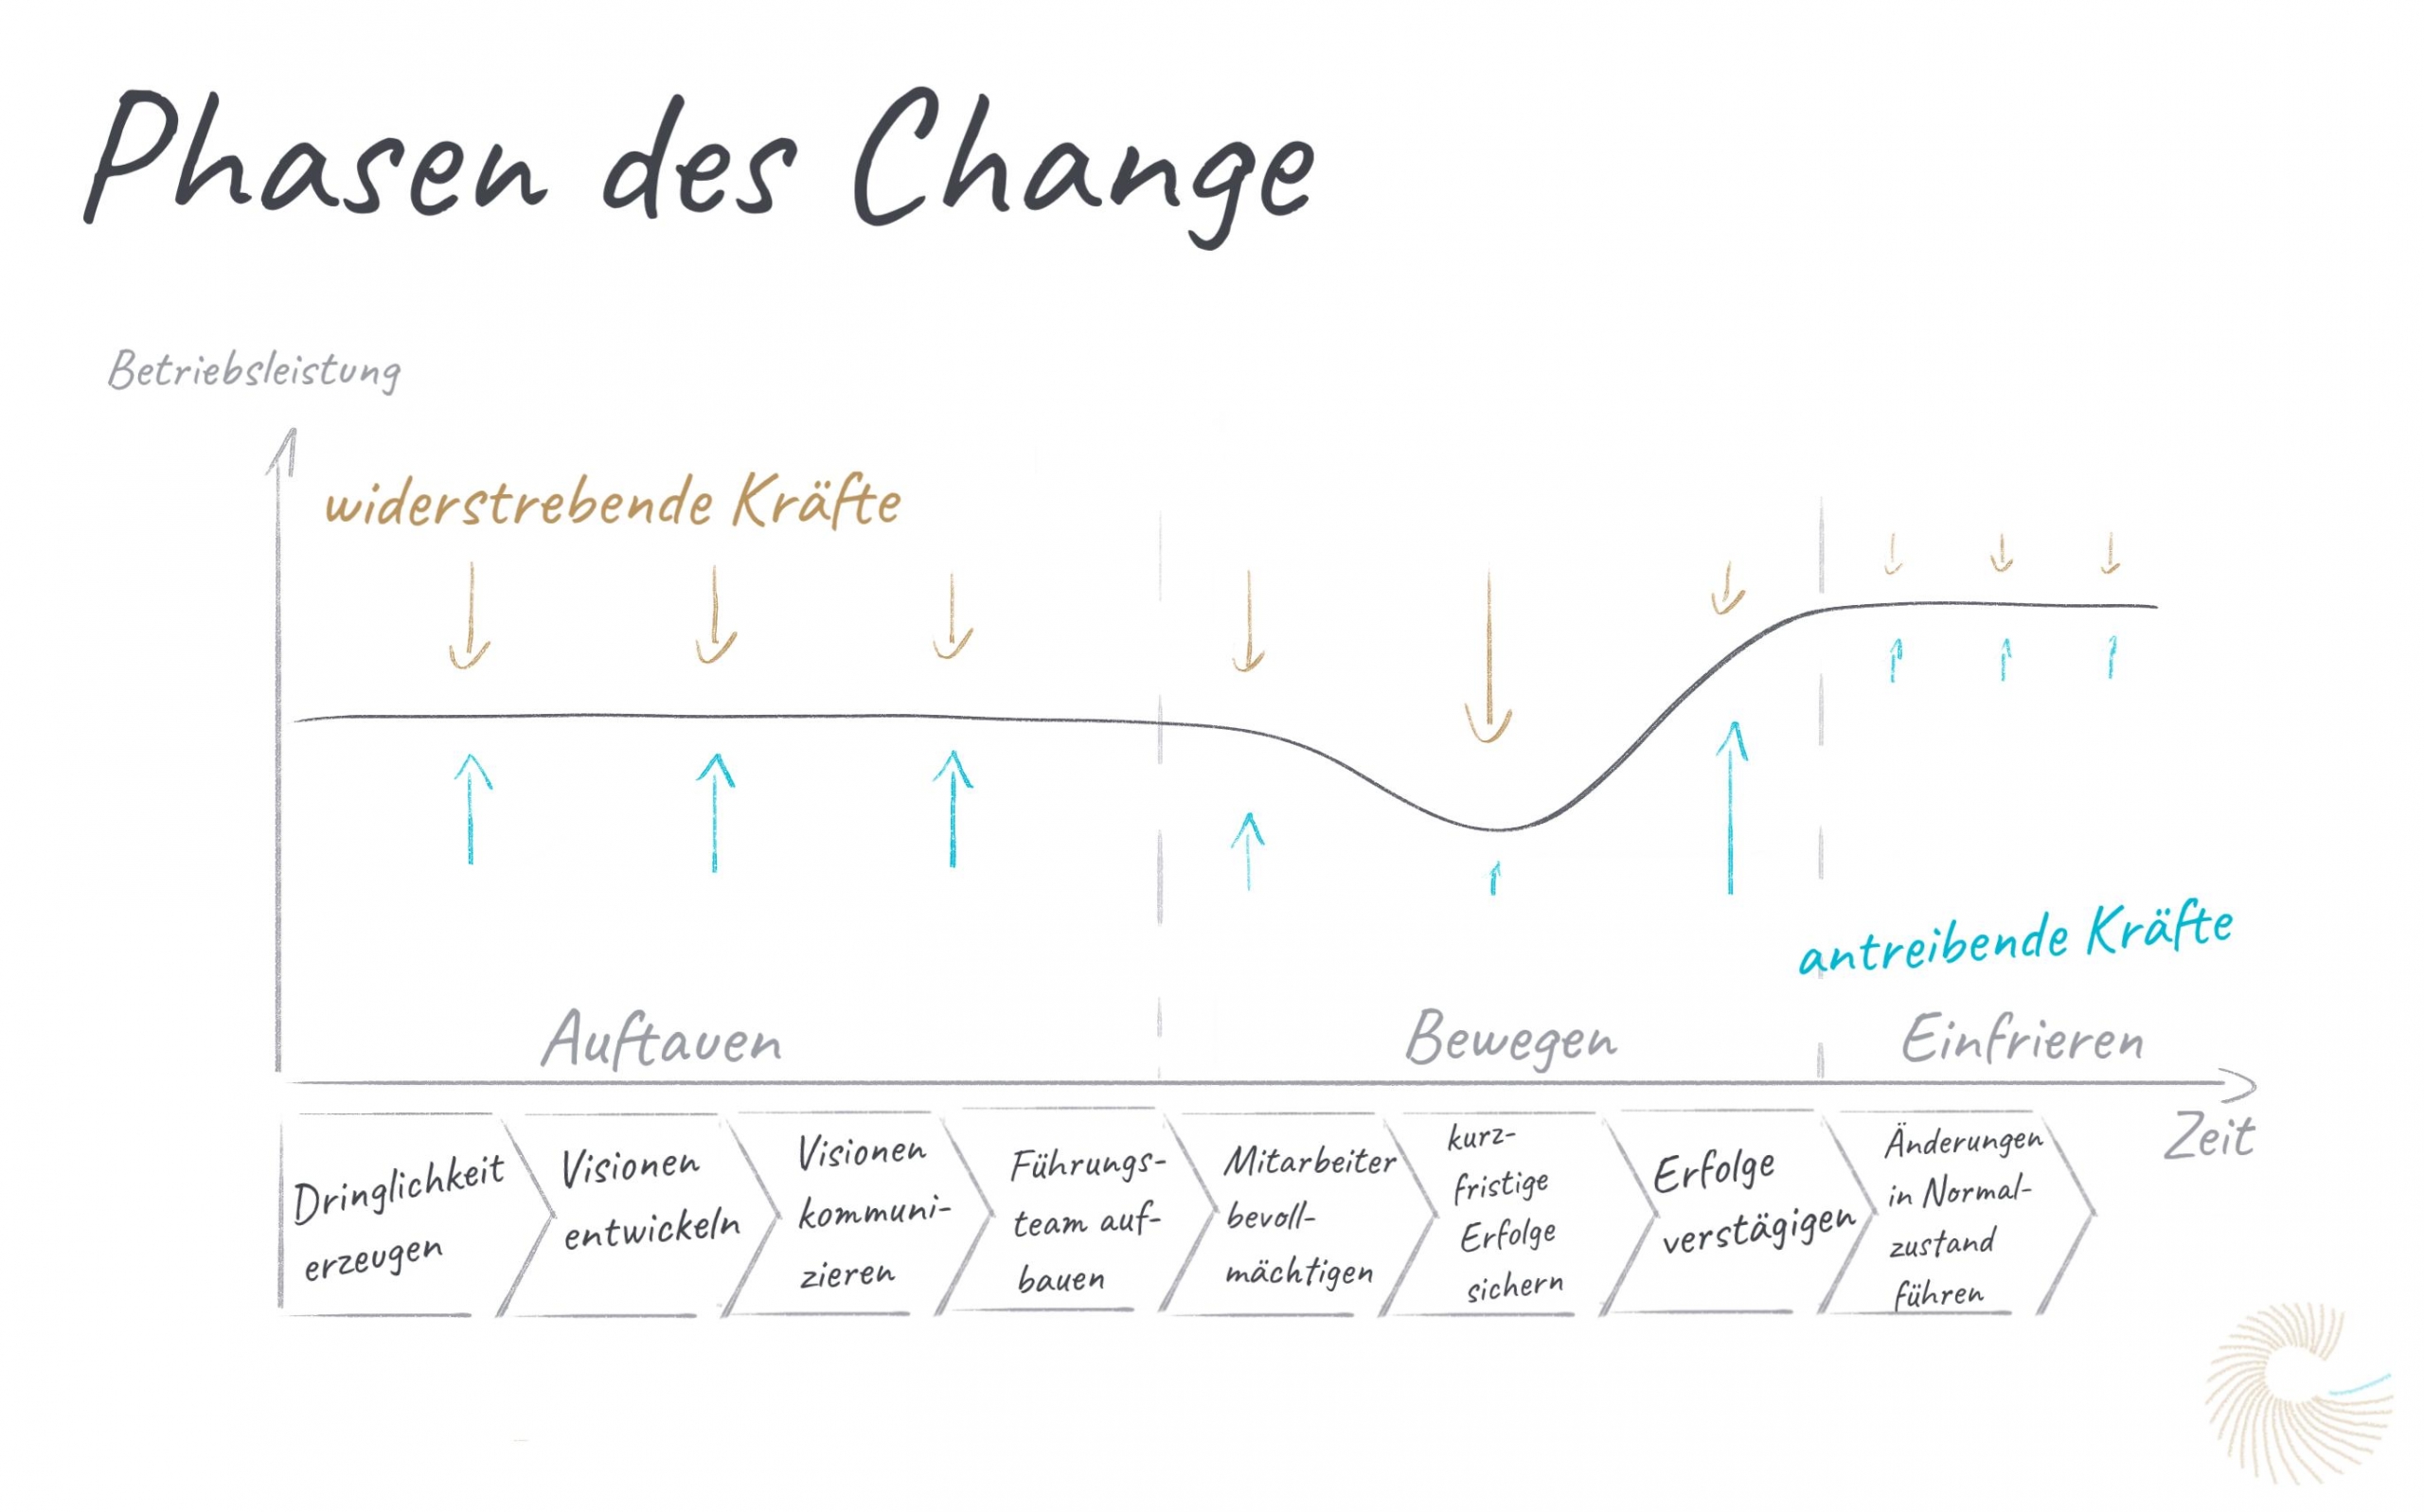 Phasen des Change
Betriebsleistung
widerstrebende Kräfte
antreibende Kräfte
Auftauen
Bewegen
Einfrieren
Zeit
Dringlichkeit
erzeugen
Visionen
entwickeln
Visionen
kommuni-
zieren
Führungs-
team auf-
bauen
Mitarbeiter
bevoll-
mächtigen
kurz-
fristige
Erfolge
sichern
Erfolge
verstägigen
Änderungen
in Normal-
zustand
führen